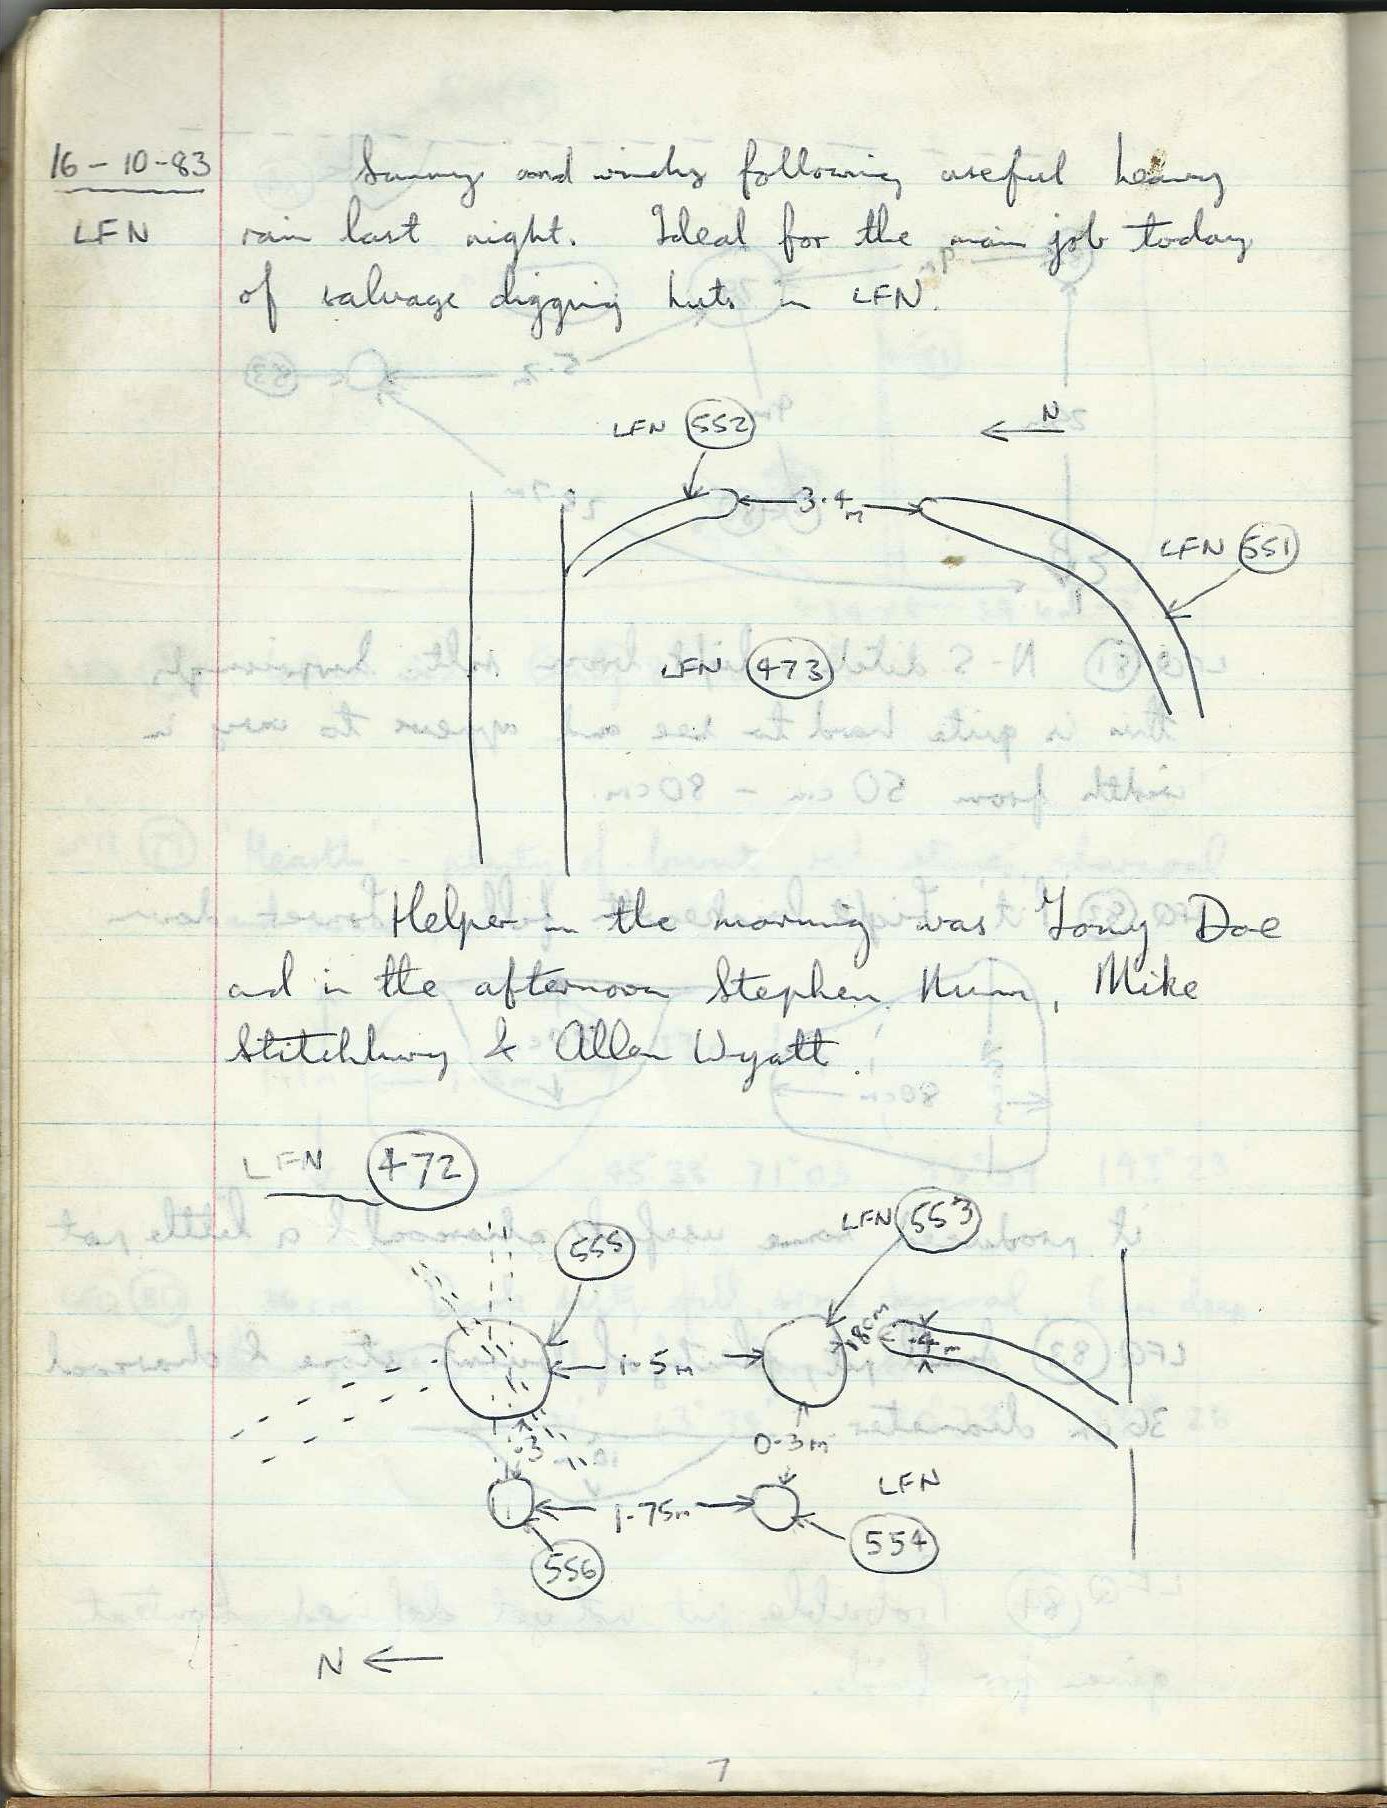 16-10-83
LFN
Sunny and windy following useful heavy
rain last night. Ideal for the main job today
of salvage digging huts in LFN.
LFN 552
N
3.4m
LFN 551
LFN 473
Helper in the morning was Tony Doe
and in the afternoon Stephen Nunn, Mike
Stitchbury & Allan Wyatt.
LFN 472
LFN 553
555
1.5m
.18cm
.4m
.3
0.3m
LFN
1.75m
554
556
N
7